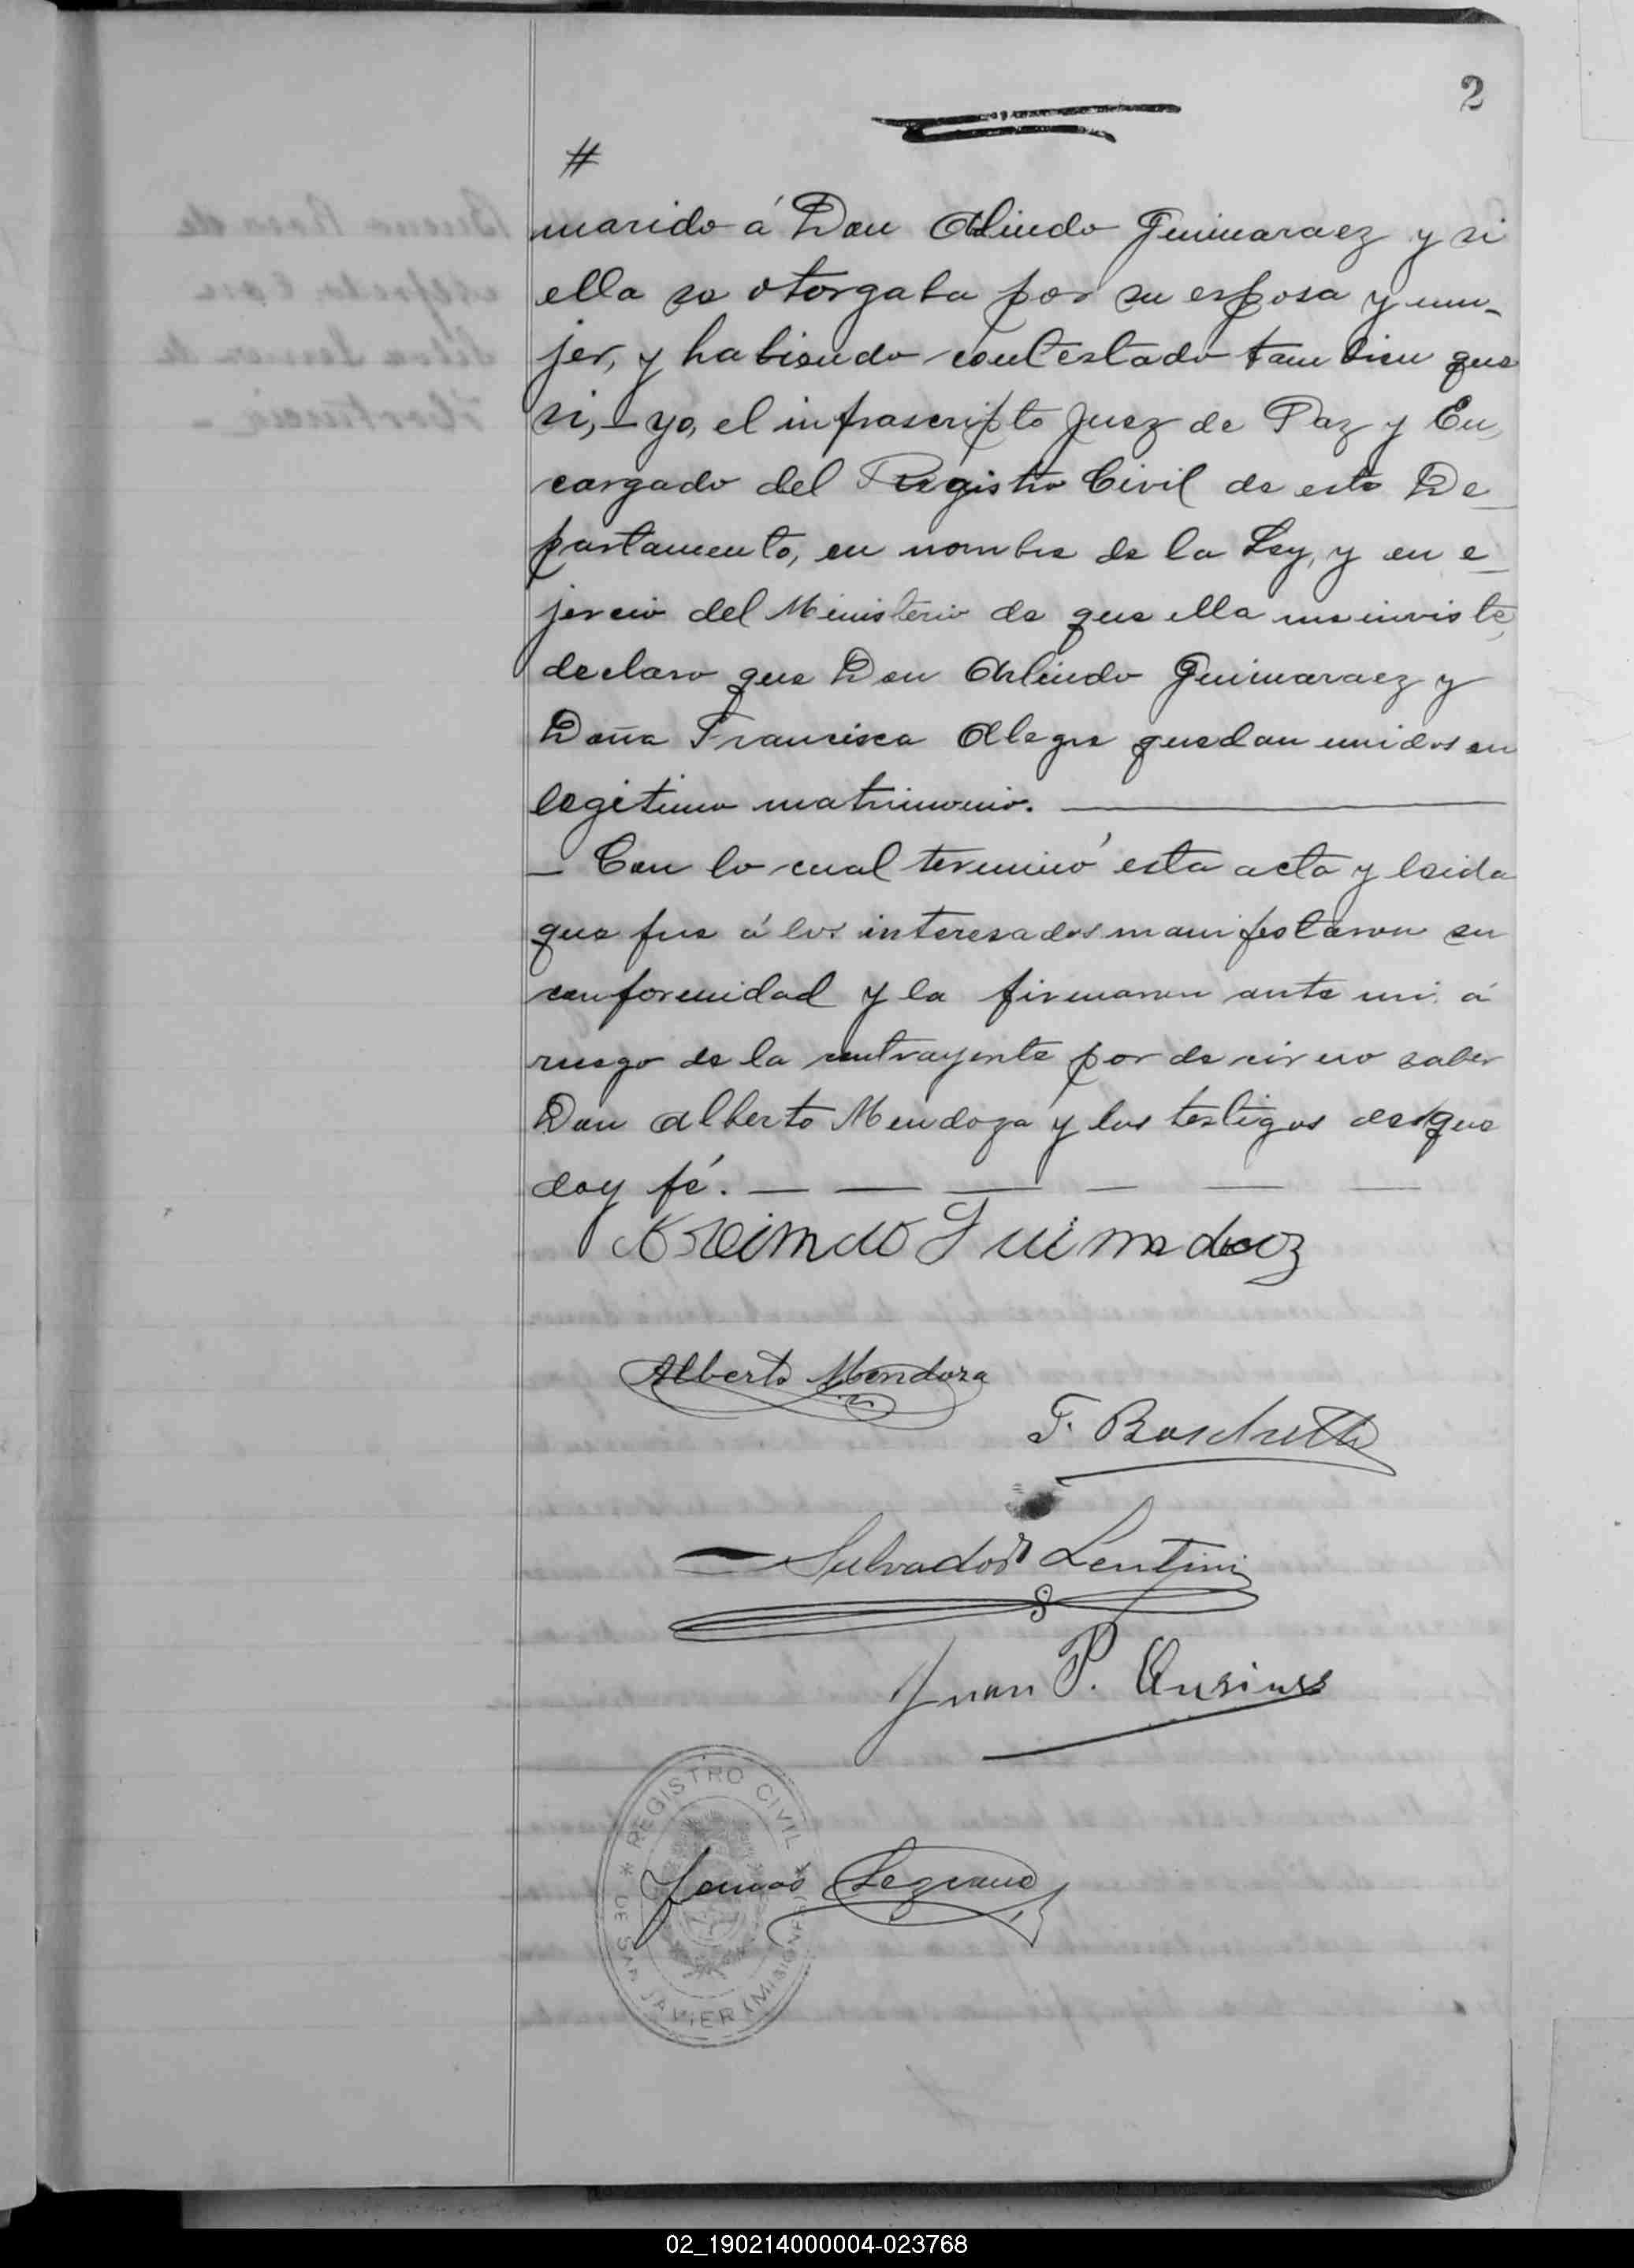 2
#
marido á Don Arlindo Guimaraez y si
ella se otorgaba por su esposa y mu-
jer, y habiendo contestado tambien que
si, - yo, el infrascripto Juez de Paz y En
cargado del Registro Civil de este De
partamento, en nombre de la Ley, y en e
jercio del Ministerio de que ella me inviste,
declaro que Don Arlindo Guimaraez y
Doña Francisca Alegre quedan unidos en
legitimo matrimonio.
- Con lo cual terminó esta acta y leida
que fue á los interesados manifestaron su
conformidad y la firmaron ante mi á
ruego de la contrayente por decir no saber
Don Alberto Mendoza y los testigos de que
doy fé.
Alberto Mendoza
F. Boschetti
Salvador Lentini
Juan P.
REGISTRO CIVIL
DE SAN JAVIER (MISIONES)
02_190214000004-023768